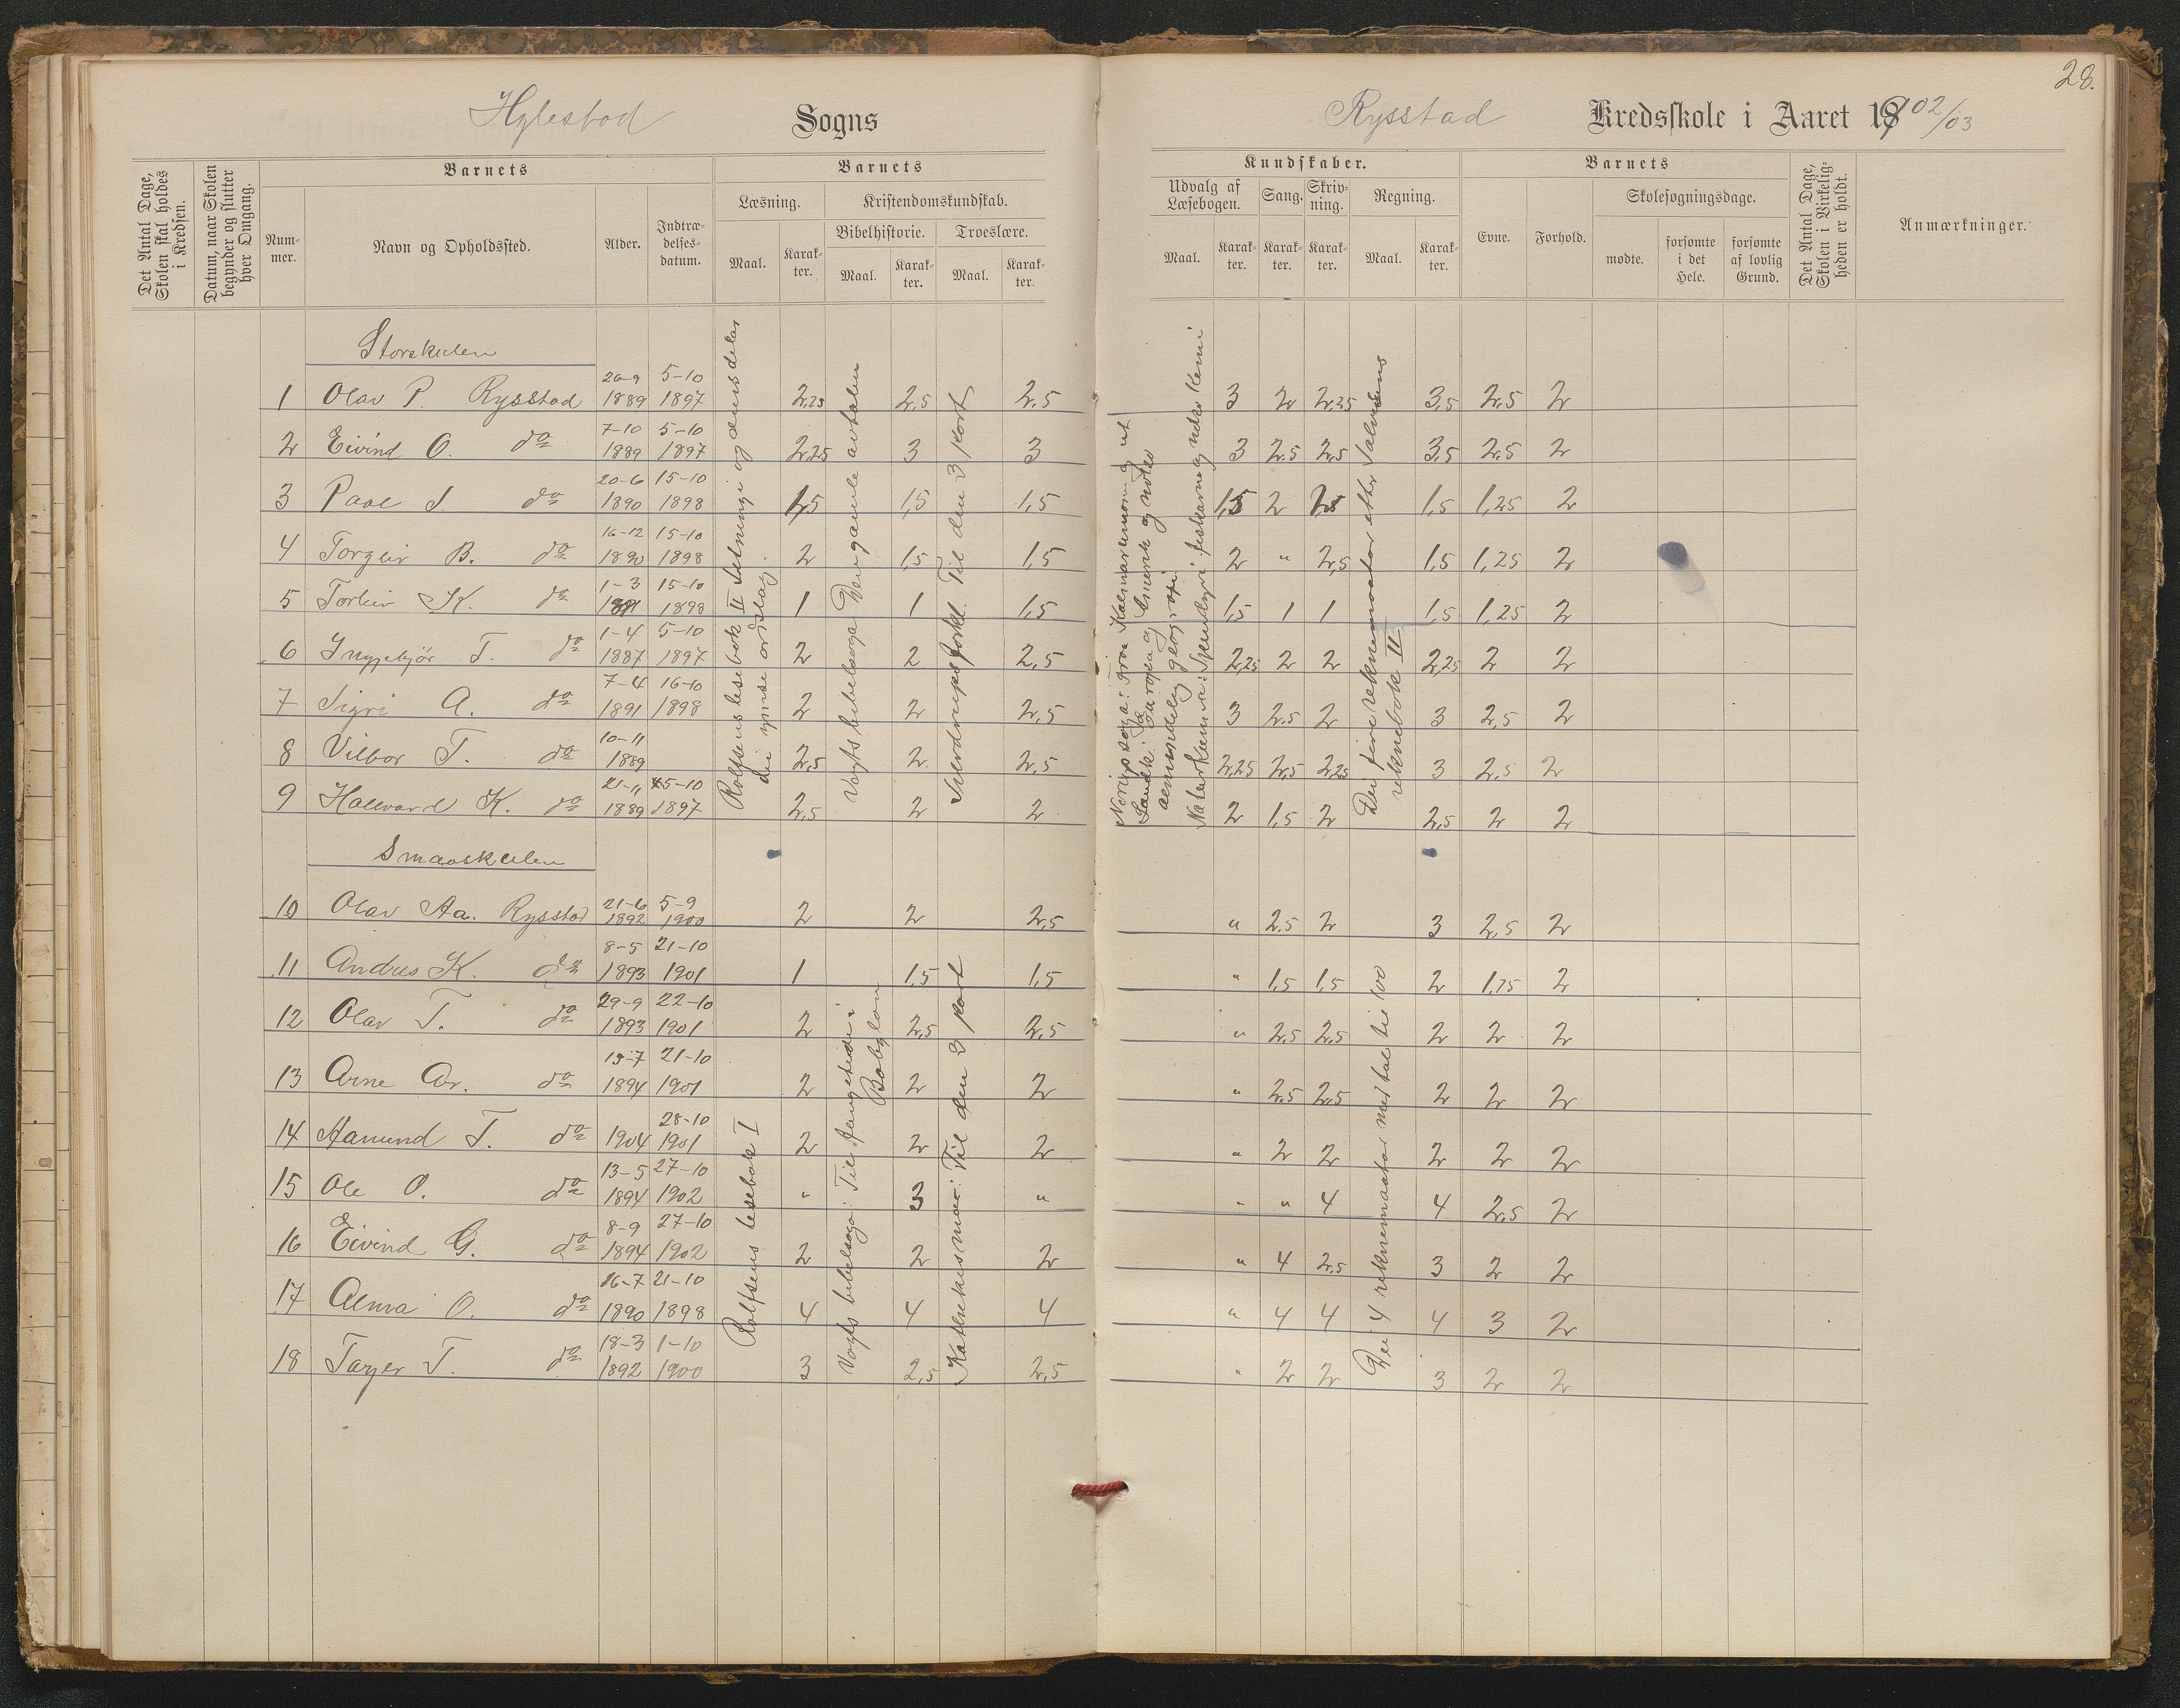 28.
Hylestad Sogns
Rysstad Kredsskole i Aaret 1902/03
Det Antal Dage, Skolen skal holdes i Kredsen.
Datum, naar Skolen begynder og slutter hver Omgang.
Barnets
Nummer.
Navn og Opholdssted.
Alder.
Indtrædelsesdatum.
Barnets
Læsning.
Maal.
Karakter.
Kristendomskundskab.
Bibelhistorie.
Maal.
Karakter.
Troeslære.
Maal.
Karakter.
Kundskaber.
Udvalg af Læsebogen.
Maal.
Karakter.
Sang.
Karakter.
Skrivning.
Karakter.
Regning.
Maal.
Karakter.
Barnets
Evne.
Forhold.
Skolesøgningsdage.
mødte.
forsømte i det Hele.
forsømte af lovlig Grund.
Det Antal Dage, Skolen i Virkeligheden er holdt.
Anmærkninger.
Storskulen
1 Olav P. Rysstad 26-9 1889 5-10 1897 2,25 2,5 2,5 3 2 2,25 3,5 2,5 2
2 Eivind O. do 7-10 1889 5-10 1897 2,25 3 3 3 2,5 2,5 3,5 2,5 2
3 Paal S. do 20-6 1890 15-10 1898 1,5 1,5 1,5 1,5 2 1,5 1,25 2
4 Torgeir B. do 16-12 1890 15-10 1898 2 1,5 1,5 2 " 2,5 1,5 1,25 2
5 Torleiv K. do 1-3 1891 15-10 1898 1 1 1,5 1,5 1 1 1,5 1,25 2
6 Ingebjør T. do 1-4 1887 5-10 1897 2 2 2,5 2,25 2 2 2,25 2 2
7 Sigri A. do 7-4 1891 16-10 1898 2 2 2,5 3 2,5 2 3 2,5 2
8 Vilbor T. do 10-11 1889 2,5 2 2,5 2,25 2,5 2,25 3 2,5 2
9 Hallvard K. do 21-11 1889 5-10 1897 2,5 2 2 2 1,5 2 2,5 2 2
Rolfsens lesebok II Setninge og dens delar
dei ymse ordslag
Vogts bibelsoga Den gamle avtalen
Sverdrups forkl. Til den 3 part
Noregs soga: Fraa Kalmarunionen og ut
Landk: Europa og Amerik og noko
aemindeleg geografi
Naturkunna: Spendyri fiskarne og noko kemi
Dei fire reknemaatar etter Salvesens
reknebok II
Smaaskulen
10 Olav Aa. Rysstad 21-6 1892 5-9 1900 2 2 2,5 " 2,5 2 3 2,5 2
11 Andres K. do 8-5 1893 21-10 1901 1 1,5 1,5 " 1,5 1,5 2 1,75 2
12 Olav T. do 29-9 1893 22-10 1901 2 2,5 2,5 " 2,5 2,5 2 2 2
13 Arne Ar. do 13-7 1894 21-10 1901 2 2 2 " 2,5 2,5 2 2 2
14 Aamund T. do 1904 28-10 1901 2 2 2 " 2 2 2 2 2
15 Ole O. do 13-5 1894 27-10 1902 " 3 " " " 4 4 2,5 2
16 Eivind G. do 8-9 1894 27-10 1902 2 2 2 " 4 2,5 3 2 2
17 Alma O. do 16-7 1890 21-10 1898 4 4 4 " 4 4 4 3 2
18 Tarjer T. do 18-3 1892 1-10 1900 3 2,5 2,5 " 2 2 3 2 2
Rolfsens lesebok I
Vogts bibelsoga: Til fangetidi i
Babylon
Katekismen: Til den 3 part
Dei 4 reknemaatar med tal til 100